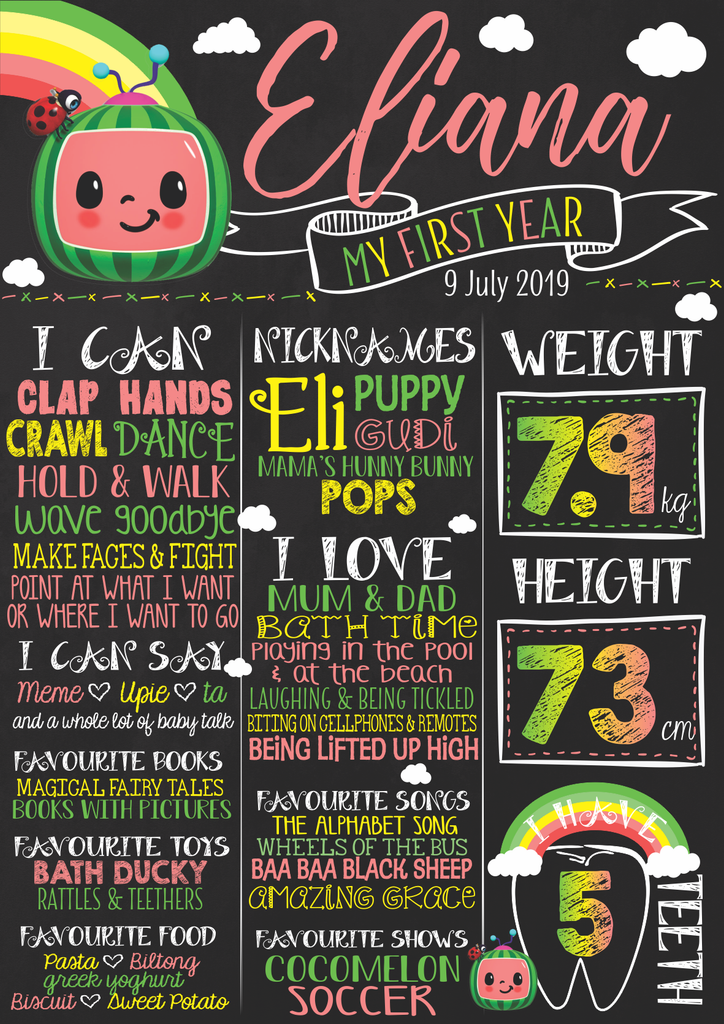 Eliana
MY FIRST YEAR
9 July 2019
I CAN
CLAP HANDS
CRAWL DANCE
HOLD & WALK
wave goodbye
MAKE FACES & FIGHT
POINT AT WHAT I WANT
OR WHERE I WANT TO GO
I CAN SAY
Meme ♡ Upie ♡ ta
and a whole lot of baby talk
FAVOURITE BOOKS
MAGICAL FAIRY TALES
BOOKS WITH PICTURES
FAVOURITE TOYS
BATH DUCKY
RATTLES & TEETHERS
FAVOURITE FOOD
Pasta ♡ Biltong
greek yoghurt
Biscuit ♡ Sweet Potato
NICKNAMES
Eli PUPPY
GUDI
MAMA'S HUNNY BUNNY
POPS
I LOVE
MUM & DAD
BATH TIME
Playing in the pool
& at the beach
LAUGHING & BEING TICKLED
BITING ON CELLPHONES & REMOTES
BEING LIFTED UP HIGH
FAVOURITE SONGS
THE ALPHABET SONG
WHEELS OF THE BUS
BAA BAA BLACK SHEEP
AMAZING GRACE
FAVOURITE SHOWS
COCOMELON
SOCCER
WEIGHT
7.9 kg
HEIGHT
73 cm
I HAVE
5
TEETH